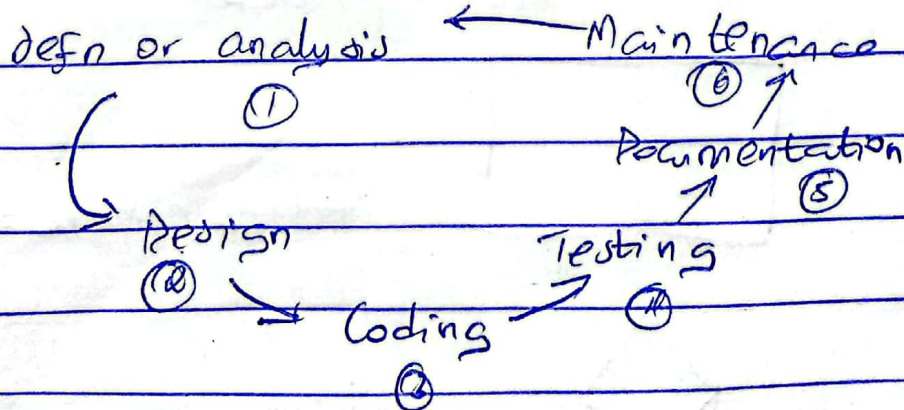 defn or analysis
Maintenance
①
⑥
Documentation
⑤
Design
Testing
②
④
Coding
③